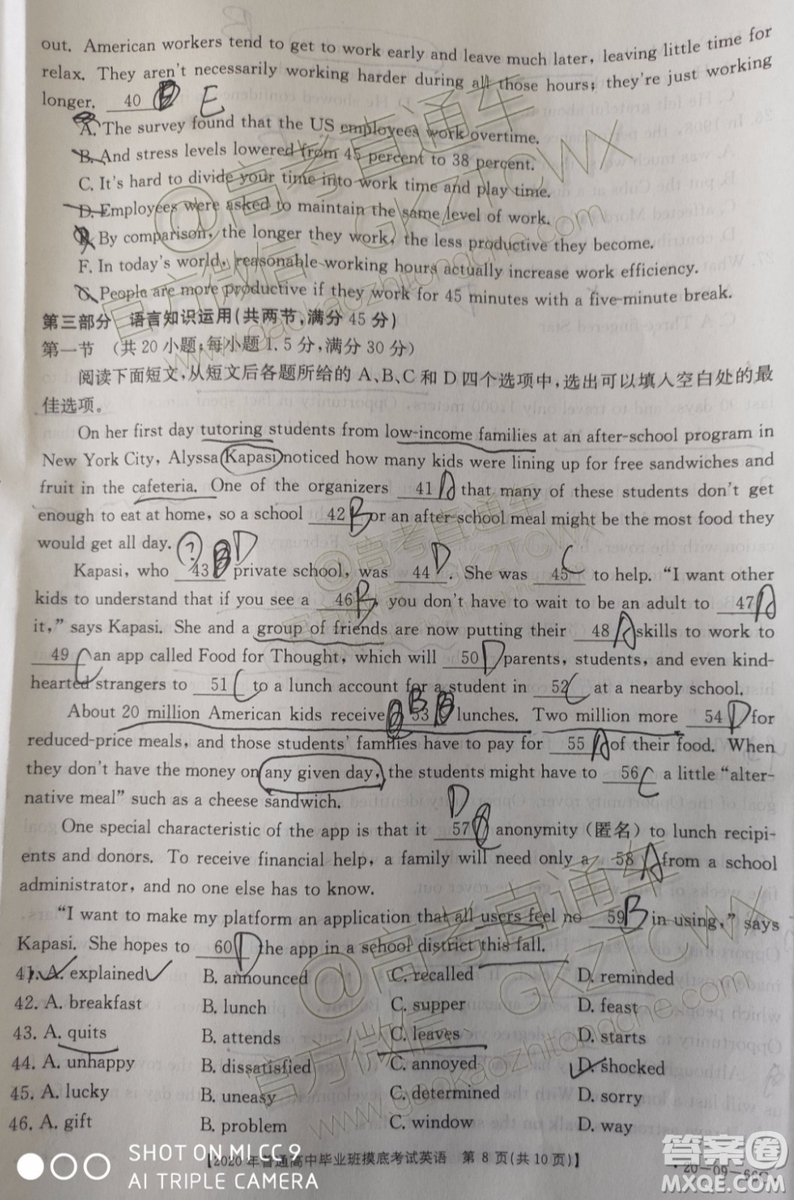 out. American workers tend to get to work early and leave much later, leaving little time for
relax. They aren't necessarily working harder during all those hours; they're just working
longer. 40 B E
A. The survey found that the US employees work overtime.
B. And stress levels lowered from 45 percent to 38 percent.
C. It's hard to divide your time into work time and play time.
D. Employees were asked to maintain the same level of work.
By comparison, the longer they work, the less productive they become.
F. In today's world, reasonable working hours actually increase work efficiency.
G. People are more productive if they work for 45 minutes with a five-minute break.
第三部分 语言知识运用(共两节,满分 45 分)
第一节 (共 20 小题;每小题 1.5 分,满分 30 分)
阅读下面短文,从短文后各题所给的 A、B、C 和 D 四个选项中,选出可以填入空白处的最
佳选项。
On her first day tutoring students from low-income families at an after-school program in
New York City, Alyssa Kapasi noticed how many kids were lining up for free sandwiches and
fruit in the cafeteria. One of the organizers 41 A that many of these students don't get
enough to eat at home, so a school 42 B or an after-school meal might be the most food they
would get all day. ?
Kapasi, who 43 B D private school, was 44 D. She was 45 C to help. "I want other
kids to understand that if you see a 46 B, you don't have to wait to be an adult to 47 A
it," says Kapasi. She and a group of friends are now putting their 48 A skills to work to
49 C an app called Food for Thought, which will 50 D parents, students, and even kind-
hearted strangers to 51 C to a lunch account for a student in 52 C at a nearby school.
About 20 million American kids receive 53 B lunches. Two million more 54 D for
reduced-price meals, and those students' families have to pay for 55 A of their food. When
they don't have the money on any given day, the students might have to 56 C a little "alter-
native meal" such as a cheese sandwich.
One special characteristic of the app is that it 57 D anonymity (匿名) to lunch recipi-
ents and donors. To receive financial help, a family will need only a 58 A from a school
administrator, and no one else has to know.
"I want to make my platform an application that all users feel no 59 B in using," says
Kapasi. She hopes to 60 D the app in a school district this fall.
41. A. explained B. announced C. recalled D. reminded
42. A. breakfast B. lunch C. supper D. feast
43. A. quits B. attends C. leaves D. starts
44. A. unhappy B. dissatisfied C. annoyed D. shocked
45. A. lucky B. uneasy C. determined D. sorry
46. A. gift B. problem C. window D. way
【2020 年普通高中毕业班摸底考试英语 第 8 页(共 10 页)】
SHOT ON MI CC 9
AI TRIPLE CAMERA
@高考直通车
官方微信:GKZTCWX
www.gaokaozhitongche.com
答案圈
MXQE.COM